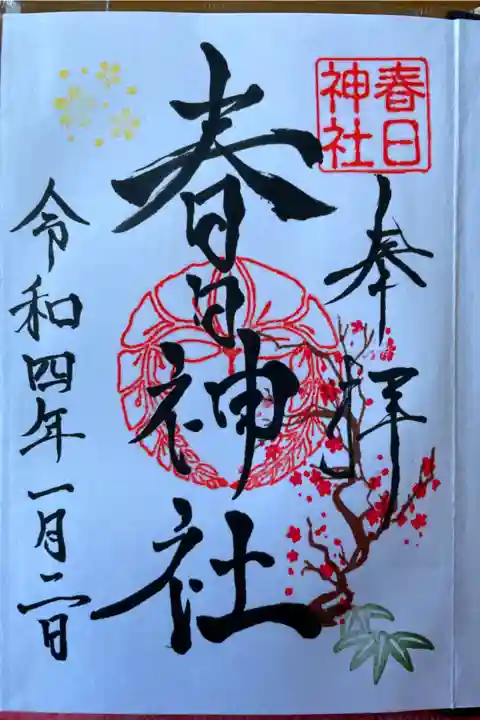 奉拝
春日
神社
春日神社
令和四年一月二日